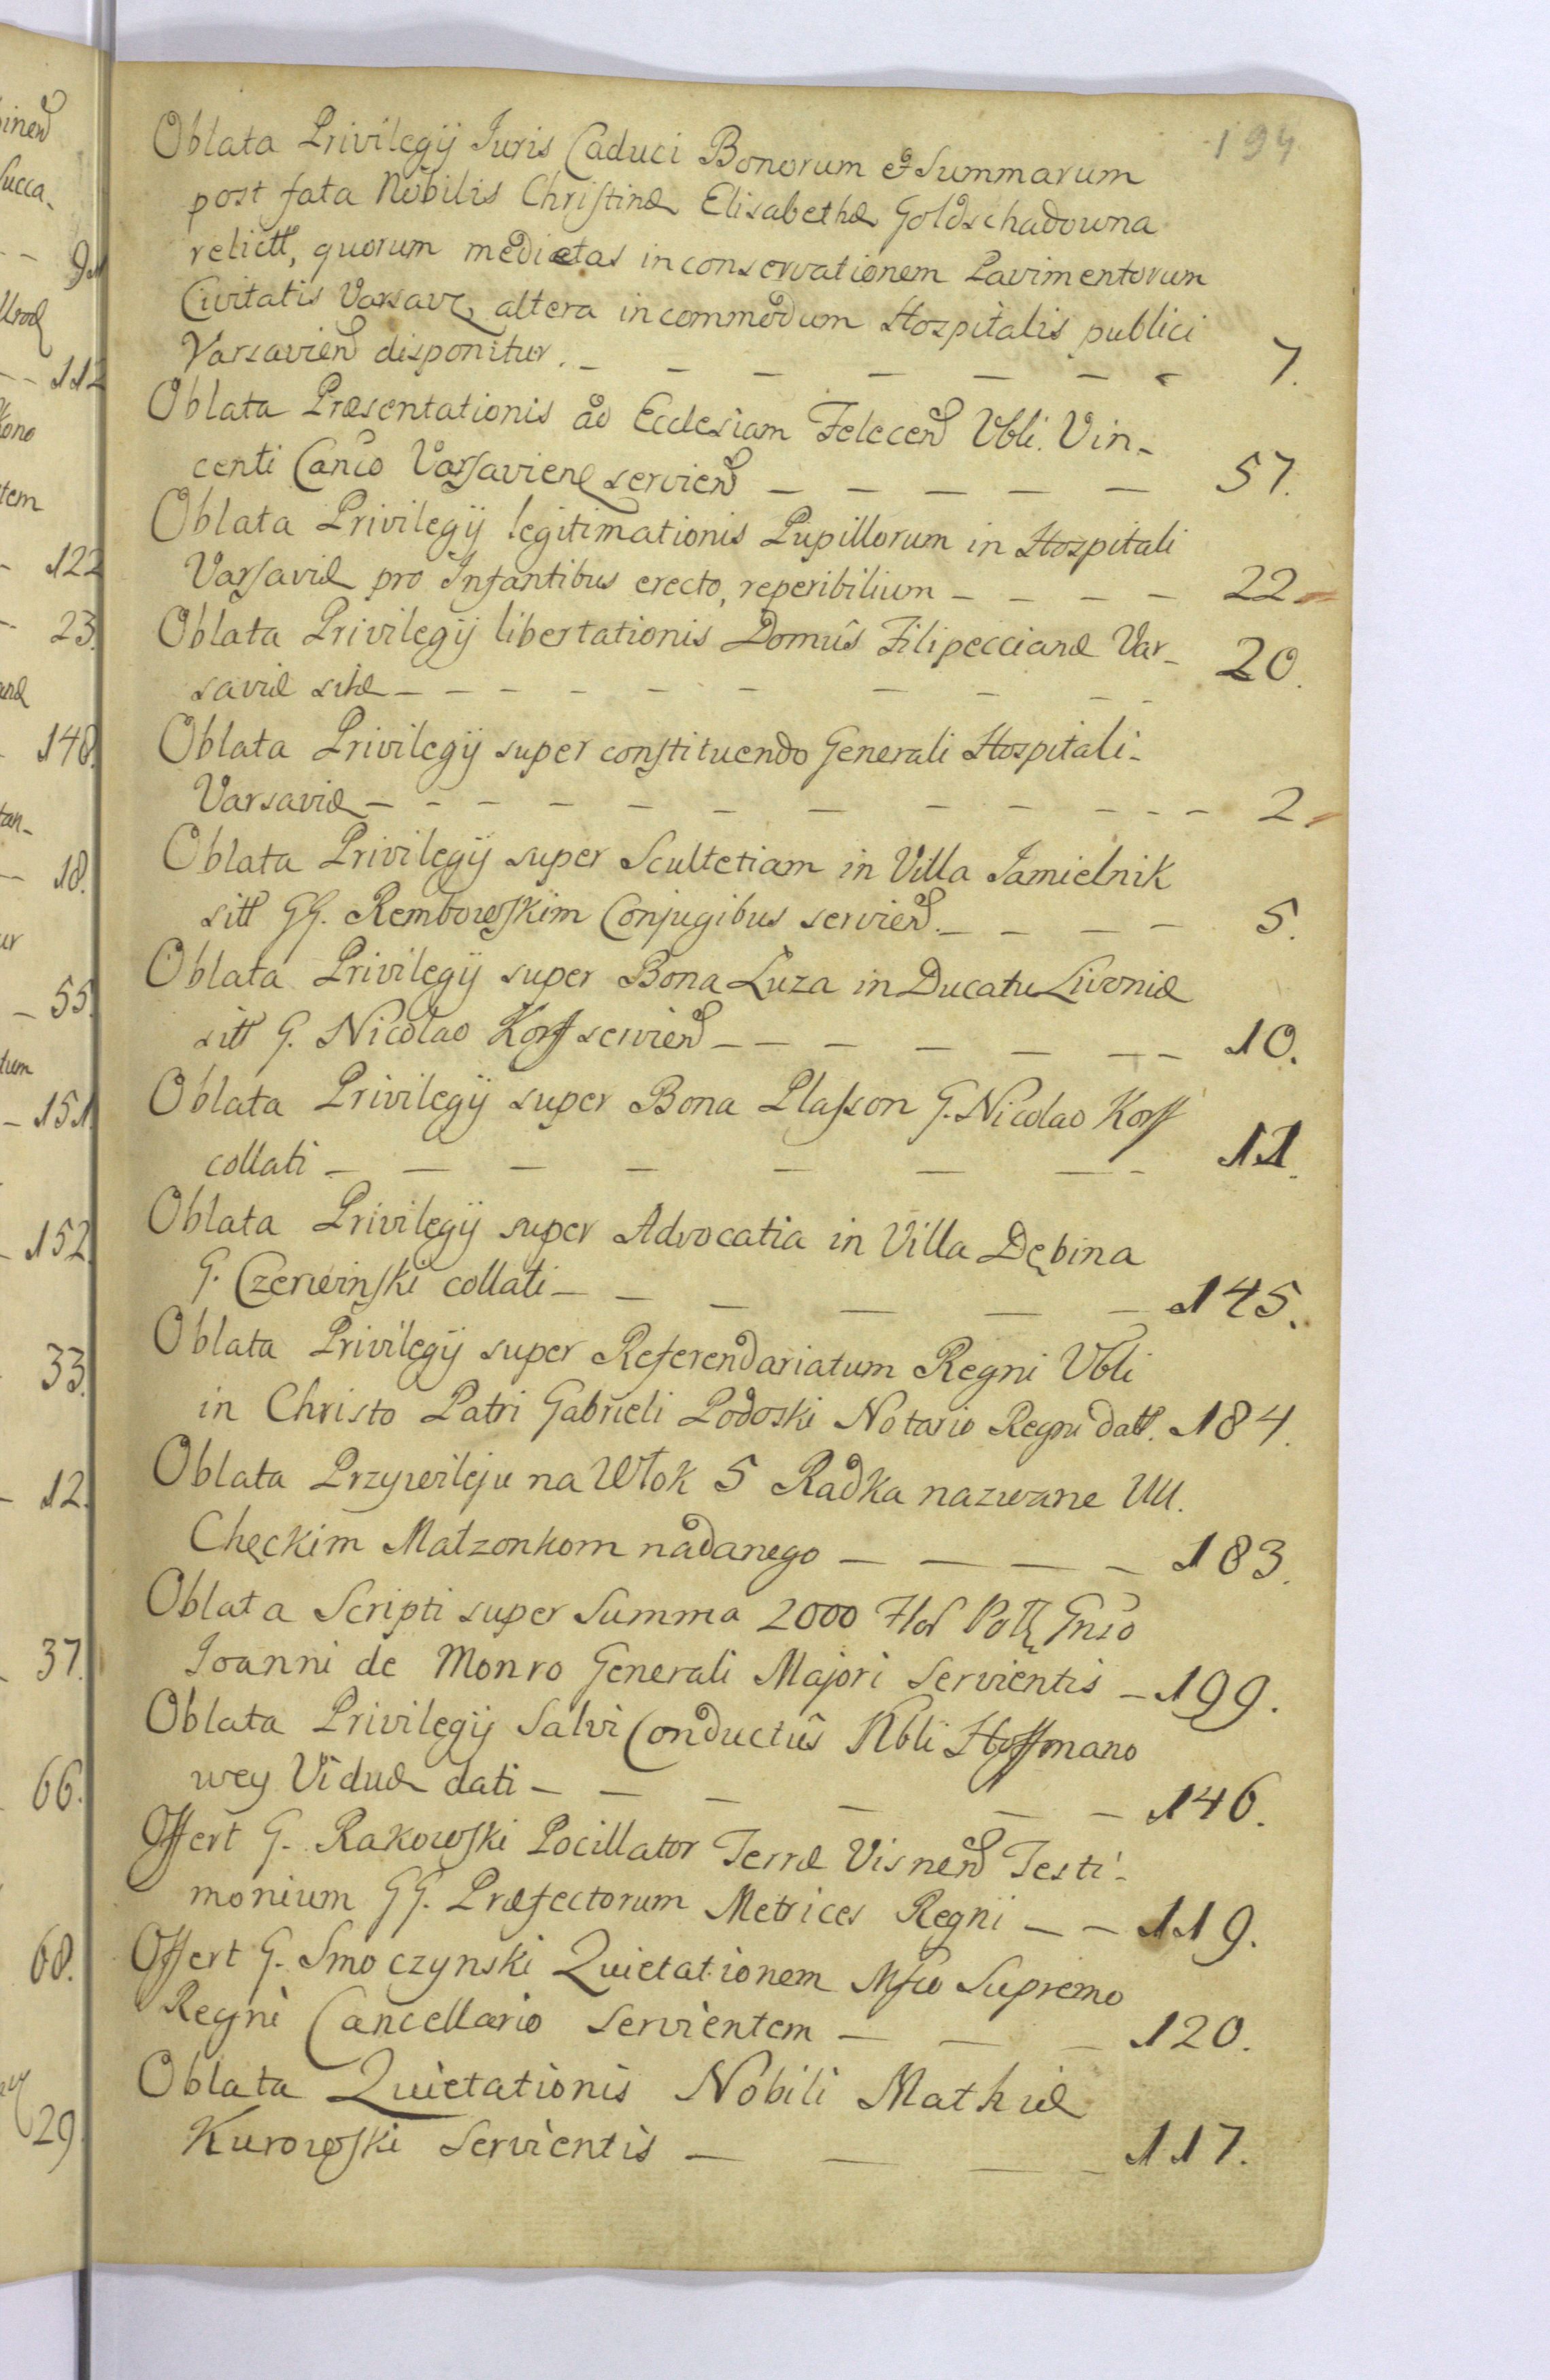 194
Oblata Privilegij Iuris Caduci Bonorum et Summarum
post fata Nobilis Christinæ Elisabethæ Goldschadowna
relictt, quorum medietas in conservationem Pavimentorum
Civitatis Varsav, altera in commodum Hospitalis publici
Varsavien disponitur. - - - - - - - 7.
Oblata Præsentationis ad Ecclesiam Felecen Vbli. Vin-
centi Canco Varsavien servien - - - - - 57.
Oblata Privilegij legitimationis Pupillorum in Hospitali
Varsaviæ pro Infantibus erecto, reperibilium - - - - 22
Oblata Privilegij libertationis Domûs Filipeccianæ Var-
saviæ sitæ - - - - - - - - - - 20.
Oblata Privilegij super constituendo Generali Hospitali
Varsaviæ - - - - - - - - - - - - 2
Oblata Privilegij super Scultetiam in Villa Jamielnik
sitt GG. Rembowskim Conjugibus servien. - - - - 5.
Oblata Privilegij super Bona Luza in Ducatu Livoniæ
sitt G. Nicolao Korff servien - - - - - - - 10.
Oblata Privilegij super Bona Plasson G. Nicolao Korff
collati - - - - - - - - 11.
Oblata Privilegij super Advocatia in Villa Dębina
G. Czerwinski collati - - - - - - 145.
Oblata Privilegij super Referendariatum Regni Vbli
in Christo Patri Gabrieli Podoski Notario Regni datt. 184.
Oblata Przywileju na Włok 5 Radka nazwane UU.
Chęckim Małzonkom nadanego - - - - 183.
Oblata Scripti super Summa 2000 Flor Poll Gnso
Joanni de Monro Generali Majori Servientis - 199.
Oblata Privilegij Salvi Conductûs Nbli Hoffmano
wey Viduæ dati - - - - - - 146.
Offert G. Rakowski Pocillator Terræ Visnen Testi-
monium GG. Præfectorum Metrices Regni - - 119.
Offert G. Smoczynski Quietationem Mfco Supremo
Regni Cancellario Servientem - - - 120.
Oblata Quietationis Nobili Mathiæ
Kurowski Servientis - - - - 117.